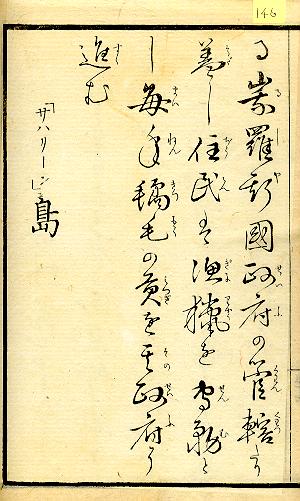 146
る峩羅斯國政府の管轄に
し住民は漁猟を専務と
し毎年毛の貢を其政府に
進む
「サハリーン」島